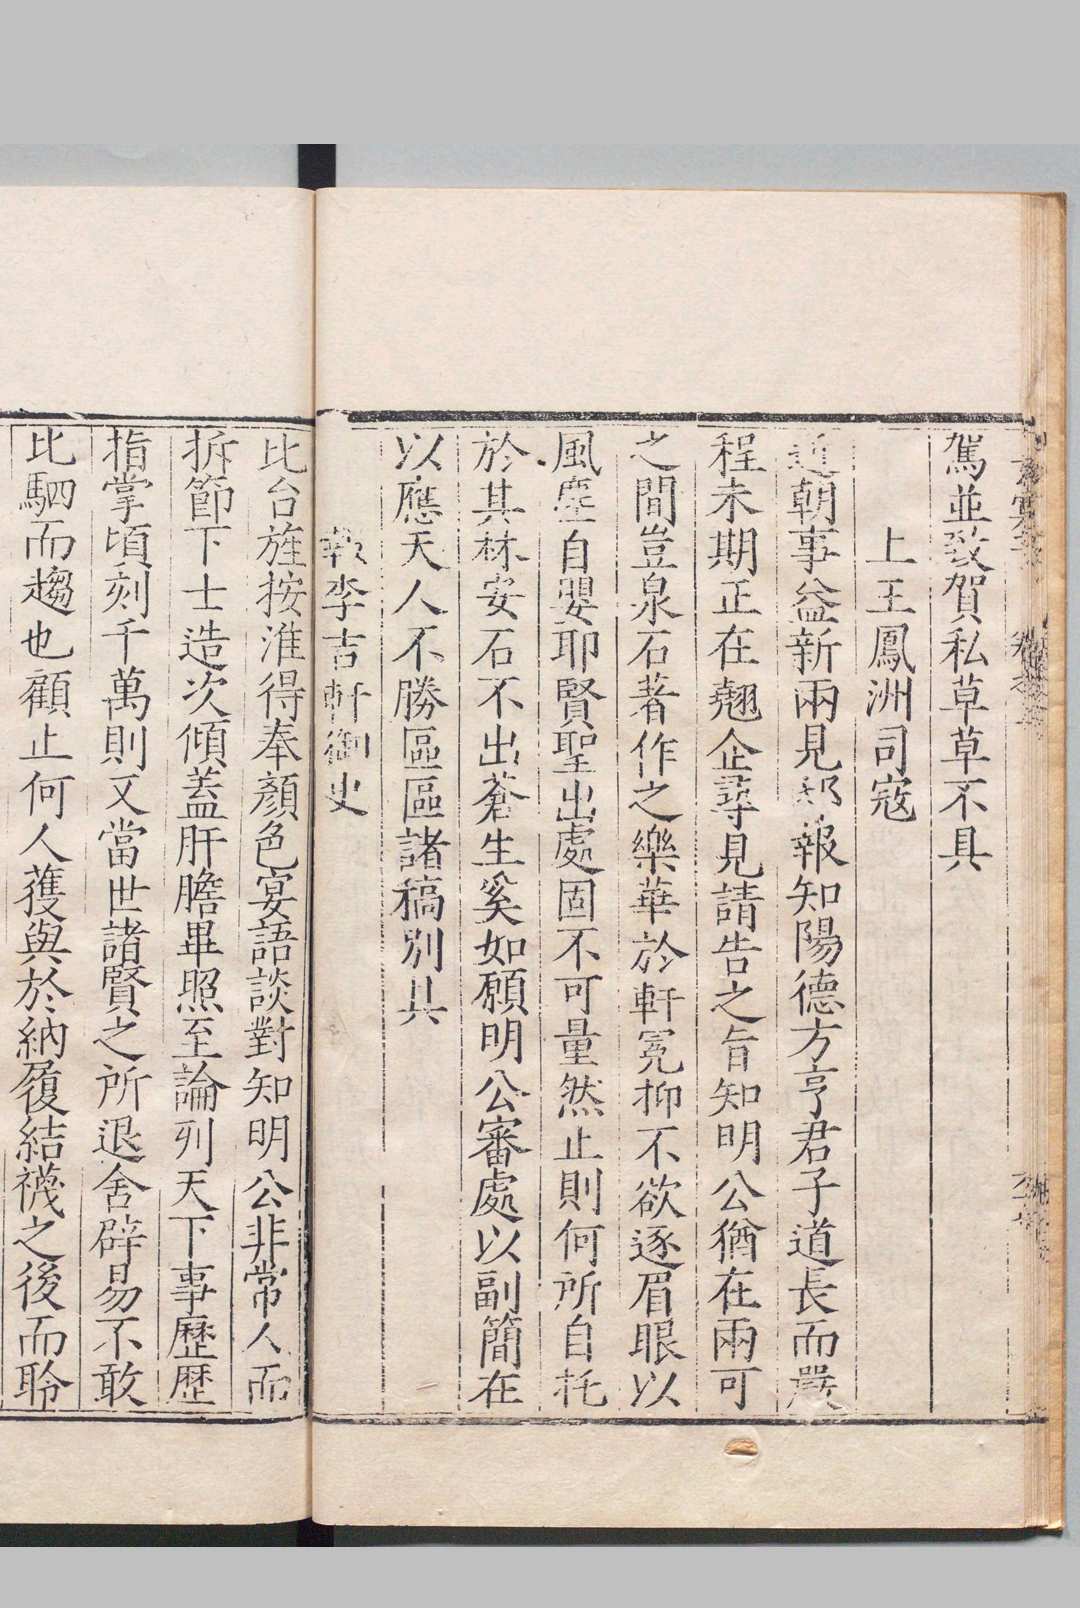 駕並致賀私草草不具
上王鳳洲司寇
近朝事益新兩見邸報知陽德方亨君子道長而嚴
程未期正在翹企尋見請告之旨知明公猶在兩可
之間豈泉石著作之樂華於軒冕抑不欲逐眉眼以
風塵自嬰耶賢聖出處固不可量然止則何所自托
於其林安石不出蒼生奚如願明公審處以副簡在
以應天人不勝區區諸稿別具
報李吉軒御史
比台旌按淮得奉顏色宴語談對知明公非常人而
折節下士造次傾蓋肝膽畢照至論列天下事歷歷
指掌頃刻千萬則又當世諸賢之所退舍辟易不敢
比駟而趨也顧止何人獲與於納履結襪之後而聆